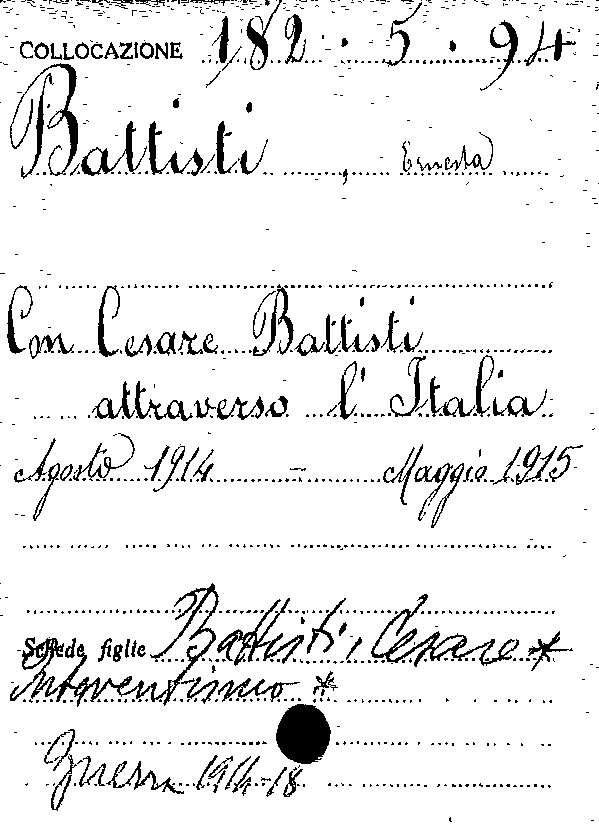 COLLOCAZIONE 182.5.94
Battisti, Ernesta
Con Cesare Battisti
attraverso l'Italia
Agosto 1914 - Maggio 1915
Schede figlie Battisti, Cesare *
Interventismo *
Guerra 1914-18